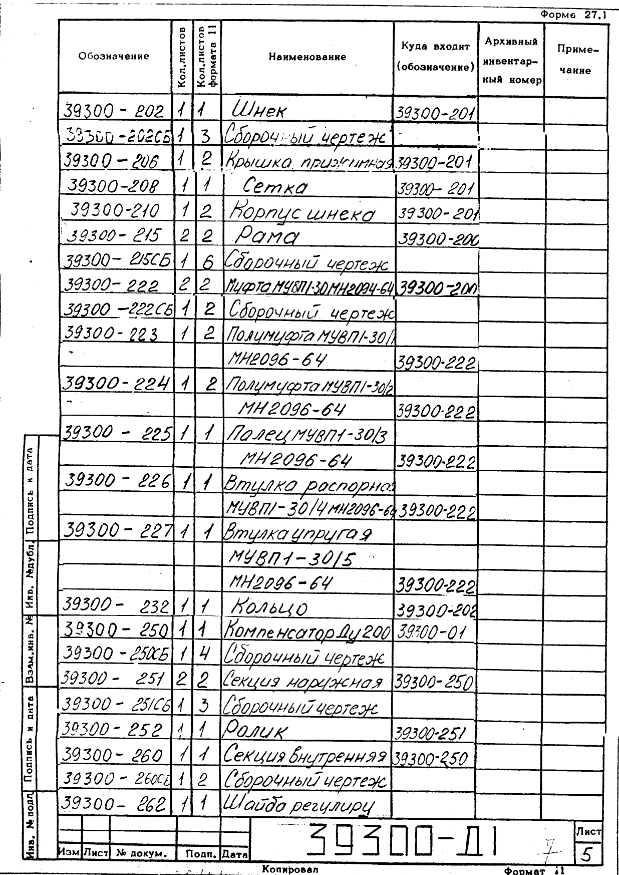 Форма 27.1
Обозначение Кол.листов Кол.листов формата 11 Наименование Куда входит (обозначение) Архивный инвентар- ный номер Приме- чание
39300 - 202 1 1 Шнек 39300-201
39300-202СБ 1 3 Сборочный чертеж
39300 - 206 1 2 Крышка прижимная 39300-201
39300-208 1 1 Сетка 39300-201
39300-210 1 2 Корпус шнека 39300-201
39300-215 2 2 Рама 39300-200
39300 - 215СБ 1 6 Сборочный чертеж
39300 - 222 2 2 Муфта МУВП1-30 МН2094-64 39300-200
39300 -222СБ 1 2 Сборочный чертеж
39300 - 223 1 2 Полумуфта МУВП1-30/1
- МН2096-64 39300-222
39300 - 224 1 2 Полумуфта МУВП1-30/2
МН2096-64 39300-222
39300 - 225 1 1 Палец МУВП1-30/3
МН2096-64 39300-222
39300 - 226 1 1 Втулка распорная
МУВП1-30/4 МН2096-64 39300-222
39300 - 227 1 1 Втулка упругая
МУВП1-30/5
МН2096-64 39300-222
39300 - 232 1 1 Кольцо 39300-202
39300 - 250 1 1 Компенсатор Ду200 39300-01
39300 - 250СБ 1 4 Сборочный чертеж
39300 - 251 2 2 Секция наружная 39300-250
39300 - 251СБ 1 3 Сборочный чертеж
39300 - 252 1 1 Ролик 39300-251
39300 - 260 1 1 Секция внутренняя 39300-250
39300 - 260СБ 1 2 Сборочный чертеж
39300 - 262 1 1 Шайба регулиру
Подпись и дата
Инв. №дубл.
Взам.инв. №
Подпись и дата
Инв. № подл.
Изм Лист № докум. Подп. Дата
39300-Д1
7
Лист
5
Копировал Формат 11